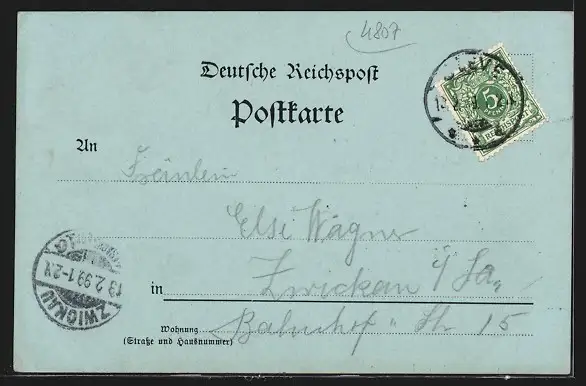 4807
Deutsche Reichspost
Postkarte
An
Fräulein
Elsi Wagner
Zwickau i/ Sa.
in
Wohnung
Bahnhof - Str 15
(Straße und Hausnummer)
5
ZWICKAU
13.2.99.1-2N